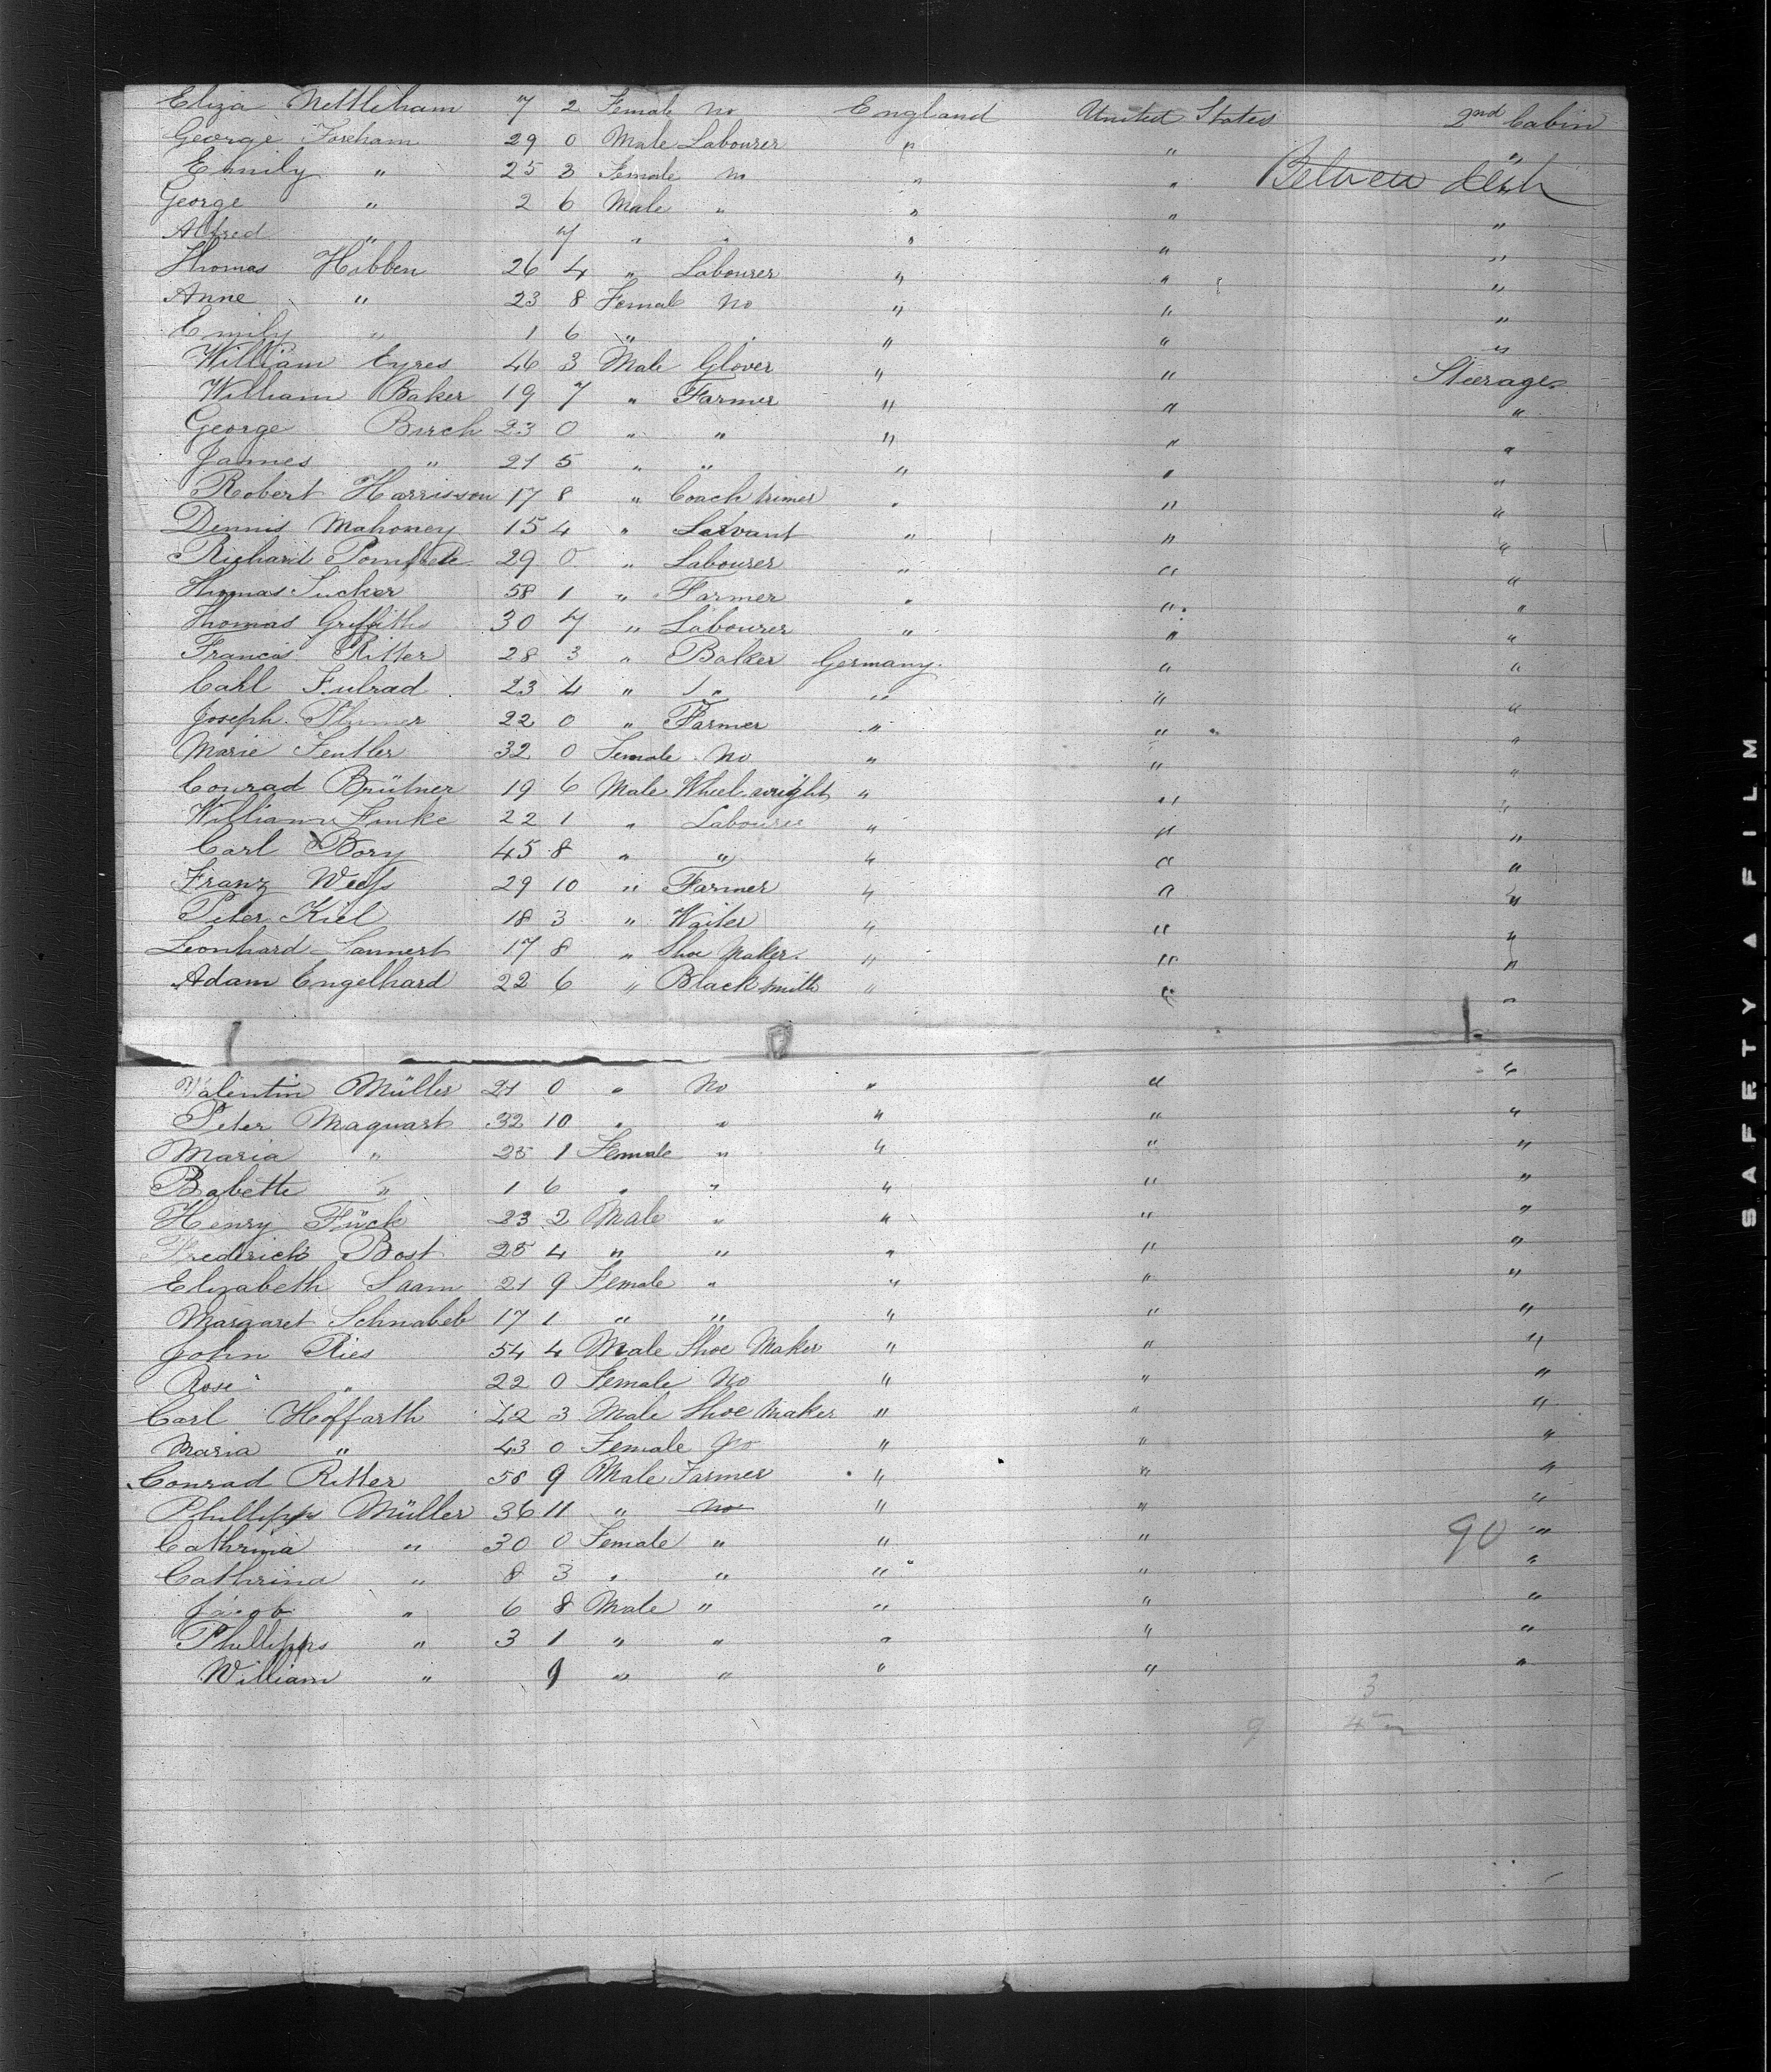 Eliza Nettleham 7 2 Female No England United States 2nd Cabin
George Foreham 29 0 Male Labourer " " "
Emily " 25 3 Female No " " Between deck
George " 2 6 Male " " " "
Alfred " 7 " " " " "
Thomas Hobben 26 4 " Labourer " " "
Anne " 23 8 Female No " " "
Emily " 1 6 " " " " "
William Eyres 46 3 Male Glover " " Steerage
William Baker 19 7 " Farmer " " "
George Burch 23 0 " " " " "
James " 21 5 " " " " "
Robert Harrisson 17 8 " Coach trimer " " "
Dennis Mahoney 15 4 " Servant " " "
Richard 29 0 " Labourer " " "
Thomas Tucker 58 1 " Farmer " " "
Thomas Griffiths 30 7 " Labourer " " "
Francis Ritter 28 3 " Baker Germany " "
Carl Fulrad 23 4 " " " " "
Joseph 22 0 " Farmer " " "
Marie 32 0 Female No " " "
Conrad Brütner 19 6 Male Wheel wright " " "
William Funke 22 1 " Labourer " " "
Carl Bory 45 8 " " " " "
Franz Weifs 29 10 " Farmer " " "
Peter Kiel 18 3 " Waiter " " "
Leonhard Lannert 17 8 " Shoe Maker " " "
Adam Engelhard 22 6 " Black smith " " "
Valentin Müller 21 0 " No " " "
Peter Maquart 32 10 " " " " "
Maria " 25 1 Female " " " "
Babette " 1 6 " " " " "
Henry Fück 23 2 Male " " " "
Frederick Bost 25 4 " " " " "
Elizabeth Saam 21 9 Female " " " "
Margaret Schnabel 17 1 " " " " "
John Ries 54 4 Male Shoe Maker " " "
Rose " 22 0 Female No " " "
Carl Hoffarth 42 3 Male Shoe Maker " " "
Maria " 43 0 Female No " " "
Conrad Ritter 58 9 Male Farmer " " "
Phillipps Müller 36 11 " No " " "
Cathrina " 30 0 Female " " " 90 "
Cathrina " 8 3 " " " " "
Jacob " 6 8 Male " " " "
Phillipps " 3 1 " " " " "
William " 9 " " " " "
3
9
SAFETY FILM